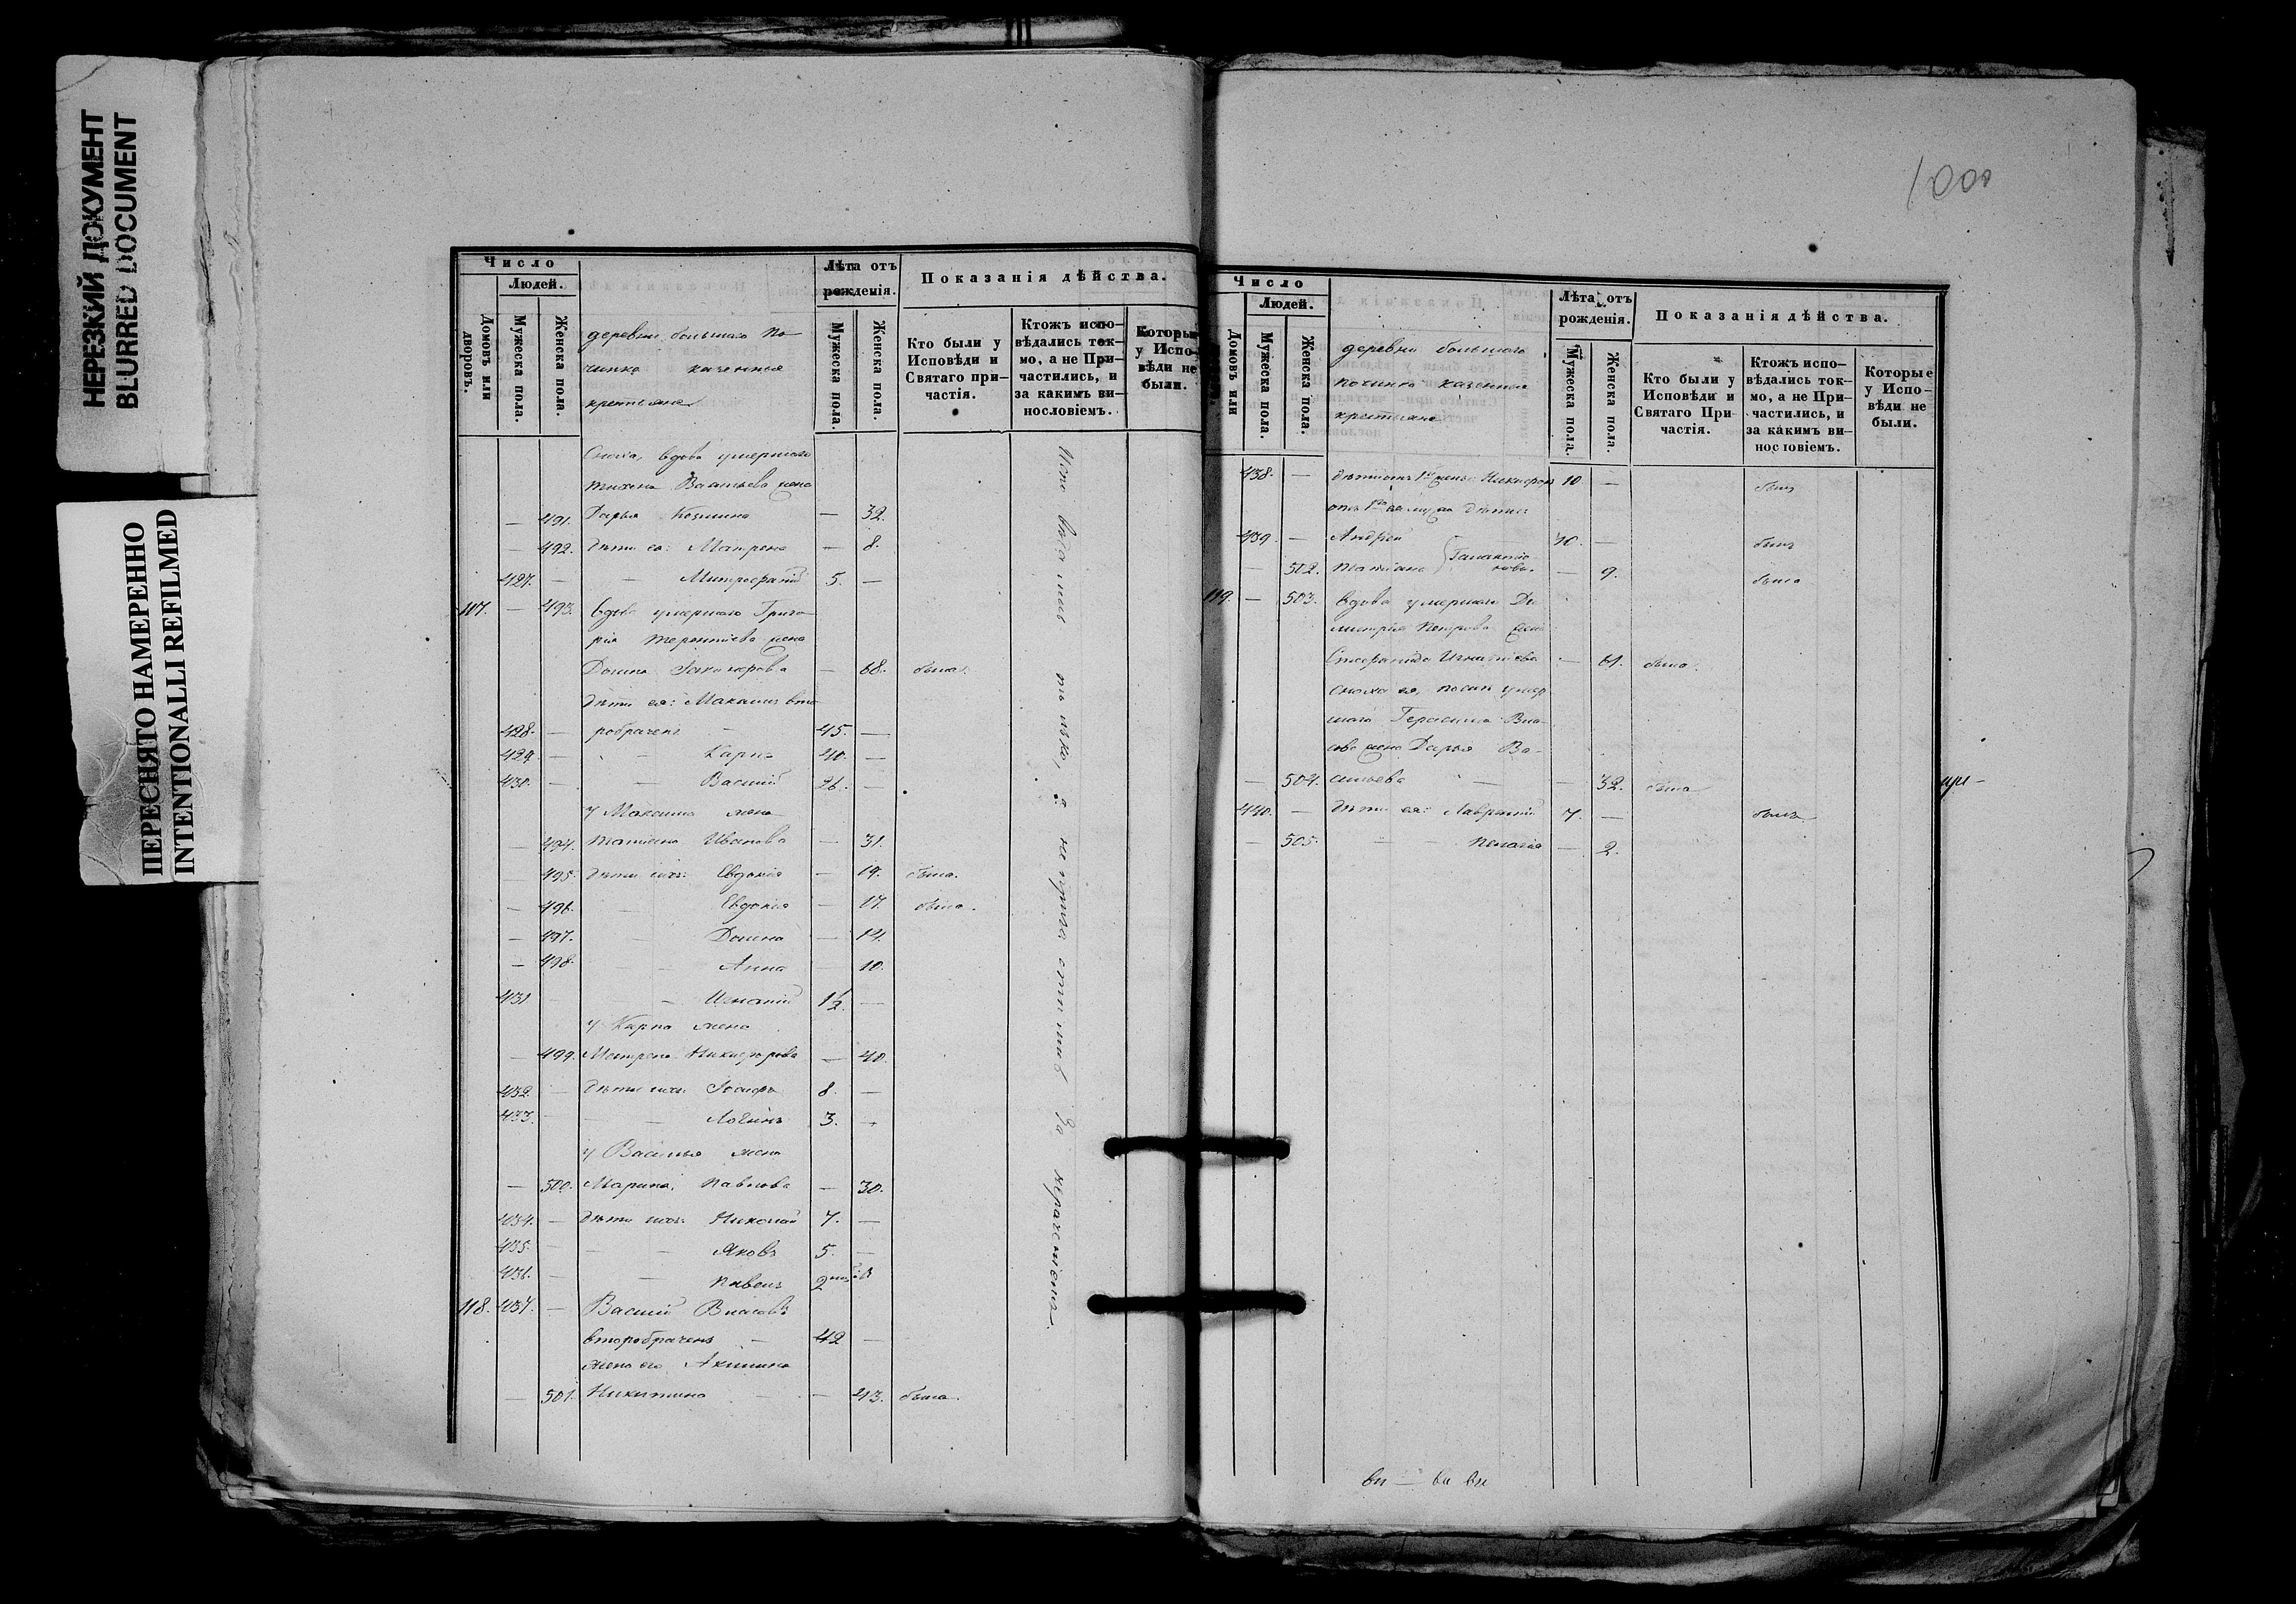 НЕРЕЗКИЙ ДОКУМЕНТ
BLURRED DOCUMENT
ПЕРЕСНЯТО НАМЕРЕННО
INTENTIONALLI REFILMED
Число
Людей.
Домовъ или дворовъ.
Мужеска пола.
Женска пола.
деревни большаго По-
чинка казенные
крестьяне
Лѣта отъ
рожденія.
Мужеска пола.
Женска пола.
Показанія дѣйства.
Кто были у
Исповѣди и
Святаго при-
частія.
Ктожъ испо-
вѣдались ток-
мо, а не При-
частились, и
за какимъ ви-
нословіемъ.
Которые
у Испо-
вѣди не
были.
Сноха, вдова умершаго
жена
— 491. Дарья Козмина — 32.
— 492. дѣти ея: Матрена — 8.
427. — — Митрофаній 5. —
117. — 493. вдова умершаго Григо-
рія Терентіева жена
Домна — 68. была.
дѣти ея: Максимъ вто-
428. — робраченъ — 45. —
429. — — Карпъ 40. —
430. — — Василій 26. —
У Максима жена
— 494. Татіана Иванова — 31.
— 495. дѣти ихъ: Евдокія — 19. была.
— 496. — Евдокія — 17. была.
— 497. — Домна — 14.
— 498. — — Анна — 10.
431 — — Игнатій 1/2. —
У Карпа жена
— 499. Матрена Никифорова — 40.
432. — дѣти ихъ: Іосифъ 8. —
433. — — Логинъ 3. —
У Василья жена
— 500. Марина Павлова — 30.
434. — дѣти ихъ: Николай 7. —
435. — — Яковъ 5. —
436. — — Павелъ 2
118. 437. — Василій Власовъ
второбраченъ — 42 —
жена его Акилина
— 501. Никитина — — 43. была.
за нераченіемъ.
1000
Число
Людей.
Домовъ или
Мужеска пола.
Женска пола.
деревни большаго
починка казенные
крестьяне
Лѣта отъ
рожденія.
Мужеска пола.
Женска пола.
Показанія дѣйства.
Кто были у
Исповѣди и
Святаго При-
частія.
Ктожъ испо-
вѣдались ток-
мо, а не При-
частились, и
за какимъ ви-
нословіемъ.
Которые
у Испо-
вѣди не
были.
438. — жены Никифоръ 10. — былъ
мужа дѣти
439. — Андрей 10. — былъ
— 502. Татіана — 9. была
119. — 503. вдова умершаго Ди-
митрія Петрова жена
Игнатіева — 61. была.
Сноха ея, послѣ умер-
шаго Герасима Вла-
сова жена Дарья Ва-
— 504. сильева — — 32. была
440. — дѣти ея: Лаврентій 7. — былъ
— 505. — — Пелагія — 2.